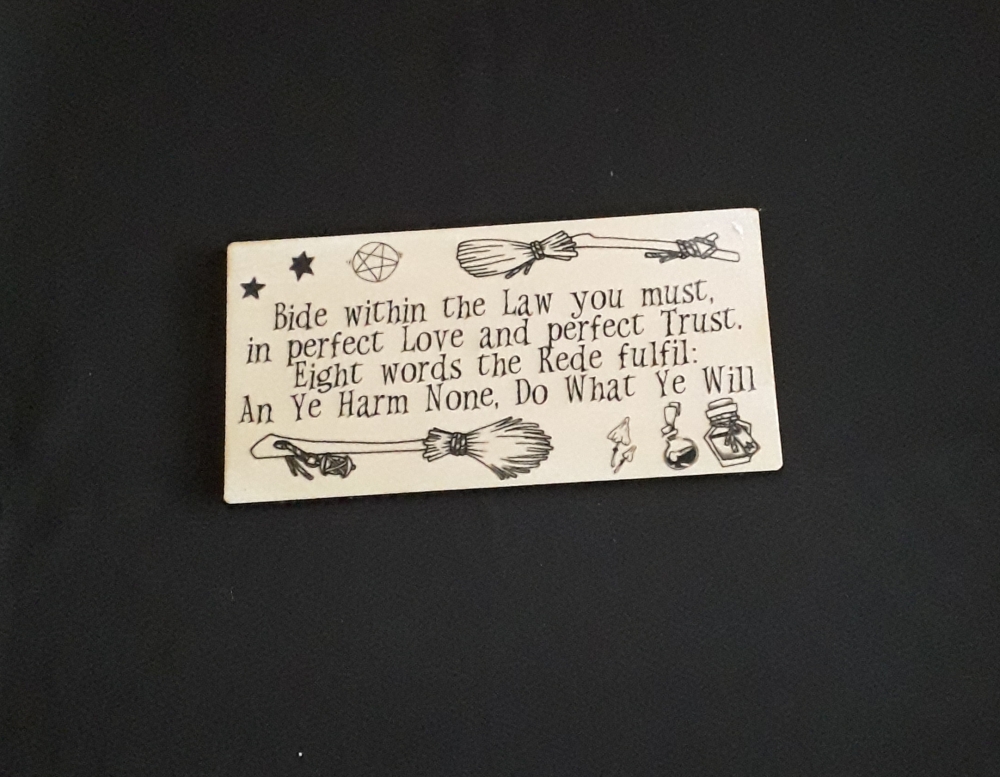 Bide within the Law you must,
in perfect Love and perfect Trust.
Eight words the Rede fulfil:
An Ye Harm None, Do What Ye Will